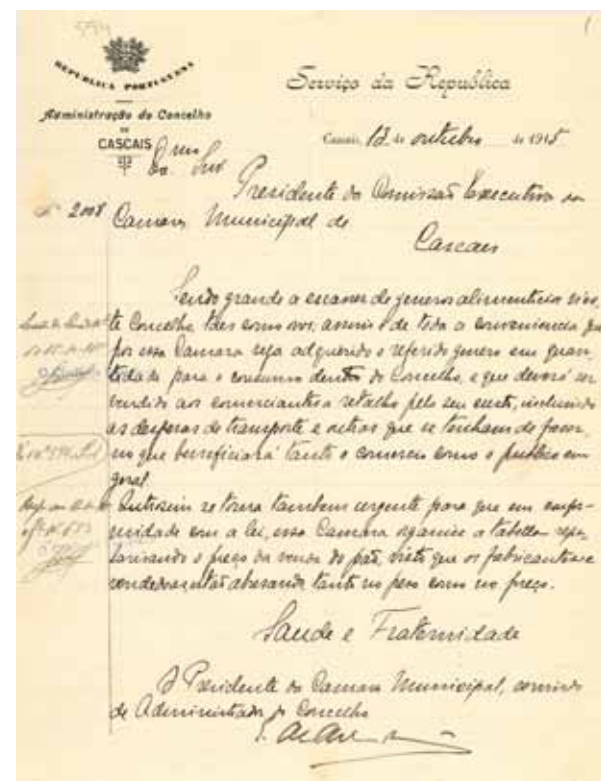 594
REPUBLICA PORTUGUESA
Serviço da Republica
Administração do Concelho
DE
CASCAIS
Cascais, 13 de outubro de 1915
Exmo Snr
Presidente da Comissão Executiva da
Nº 2008
Camara Municipal de
Cascaes
Sendo grande a escassez de generos alimenticios
te Concelho, taes como assucar é de toda a conveniencia que
por essa Camara seja adquerido o referido genero em quan-
tidade para o consumo dentro do Concelho, e que deverá ser
vendido aos comerciantes a retalho pelo seu custo, incluindo
as despesas de transporte e outras que se tenham de fazer
no que beneficiará tanto o comercio como o publico em
geral.
Outrosim se torna tambem urgente para que em confor-
midade com a lei, essa Camara organise a tabella regu-
larisando o preço da venda do pão, visto que os fabricantes e
vendedores estão abusando tanto no peso como no preço.
Saude e Fraternidade
O Presidente da Camara Municipal, servindo
de Administrador do Concelho